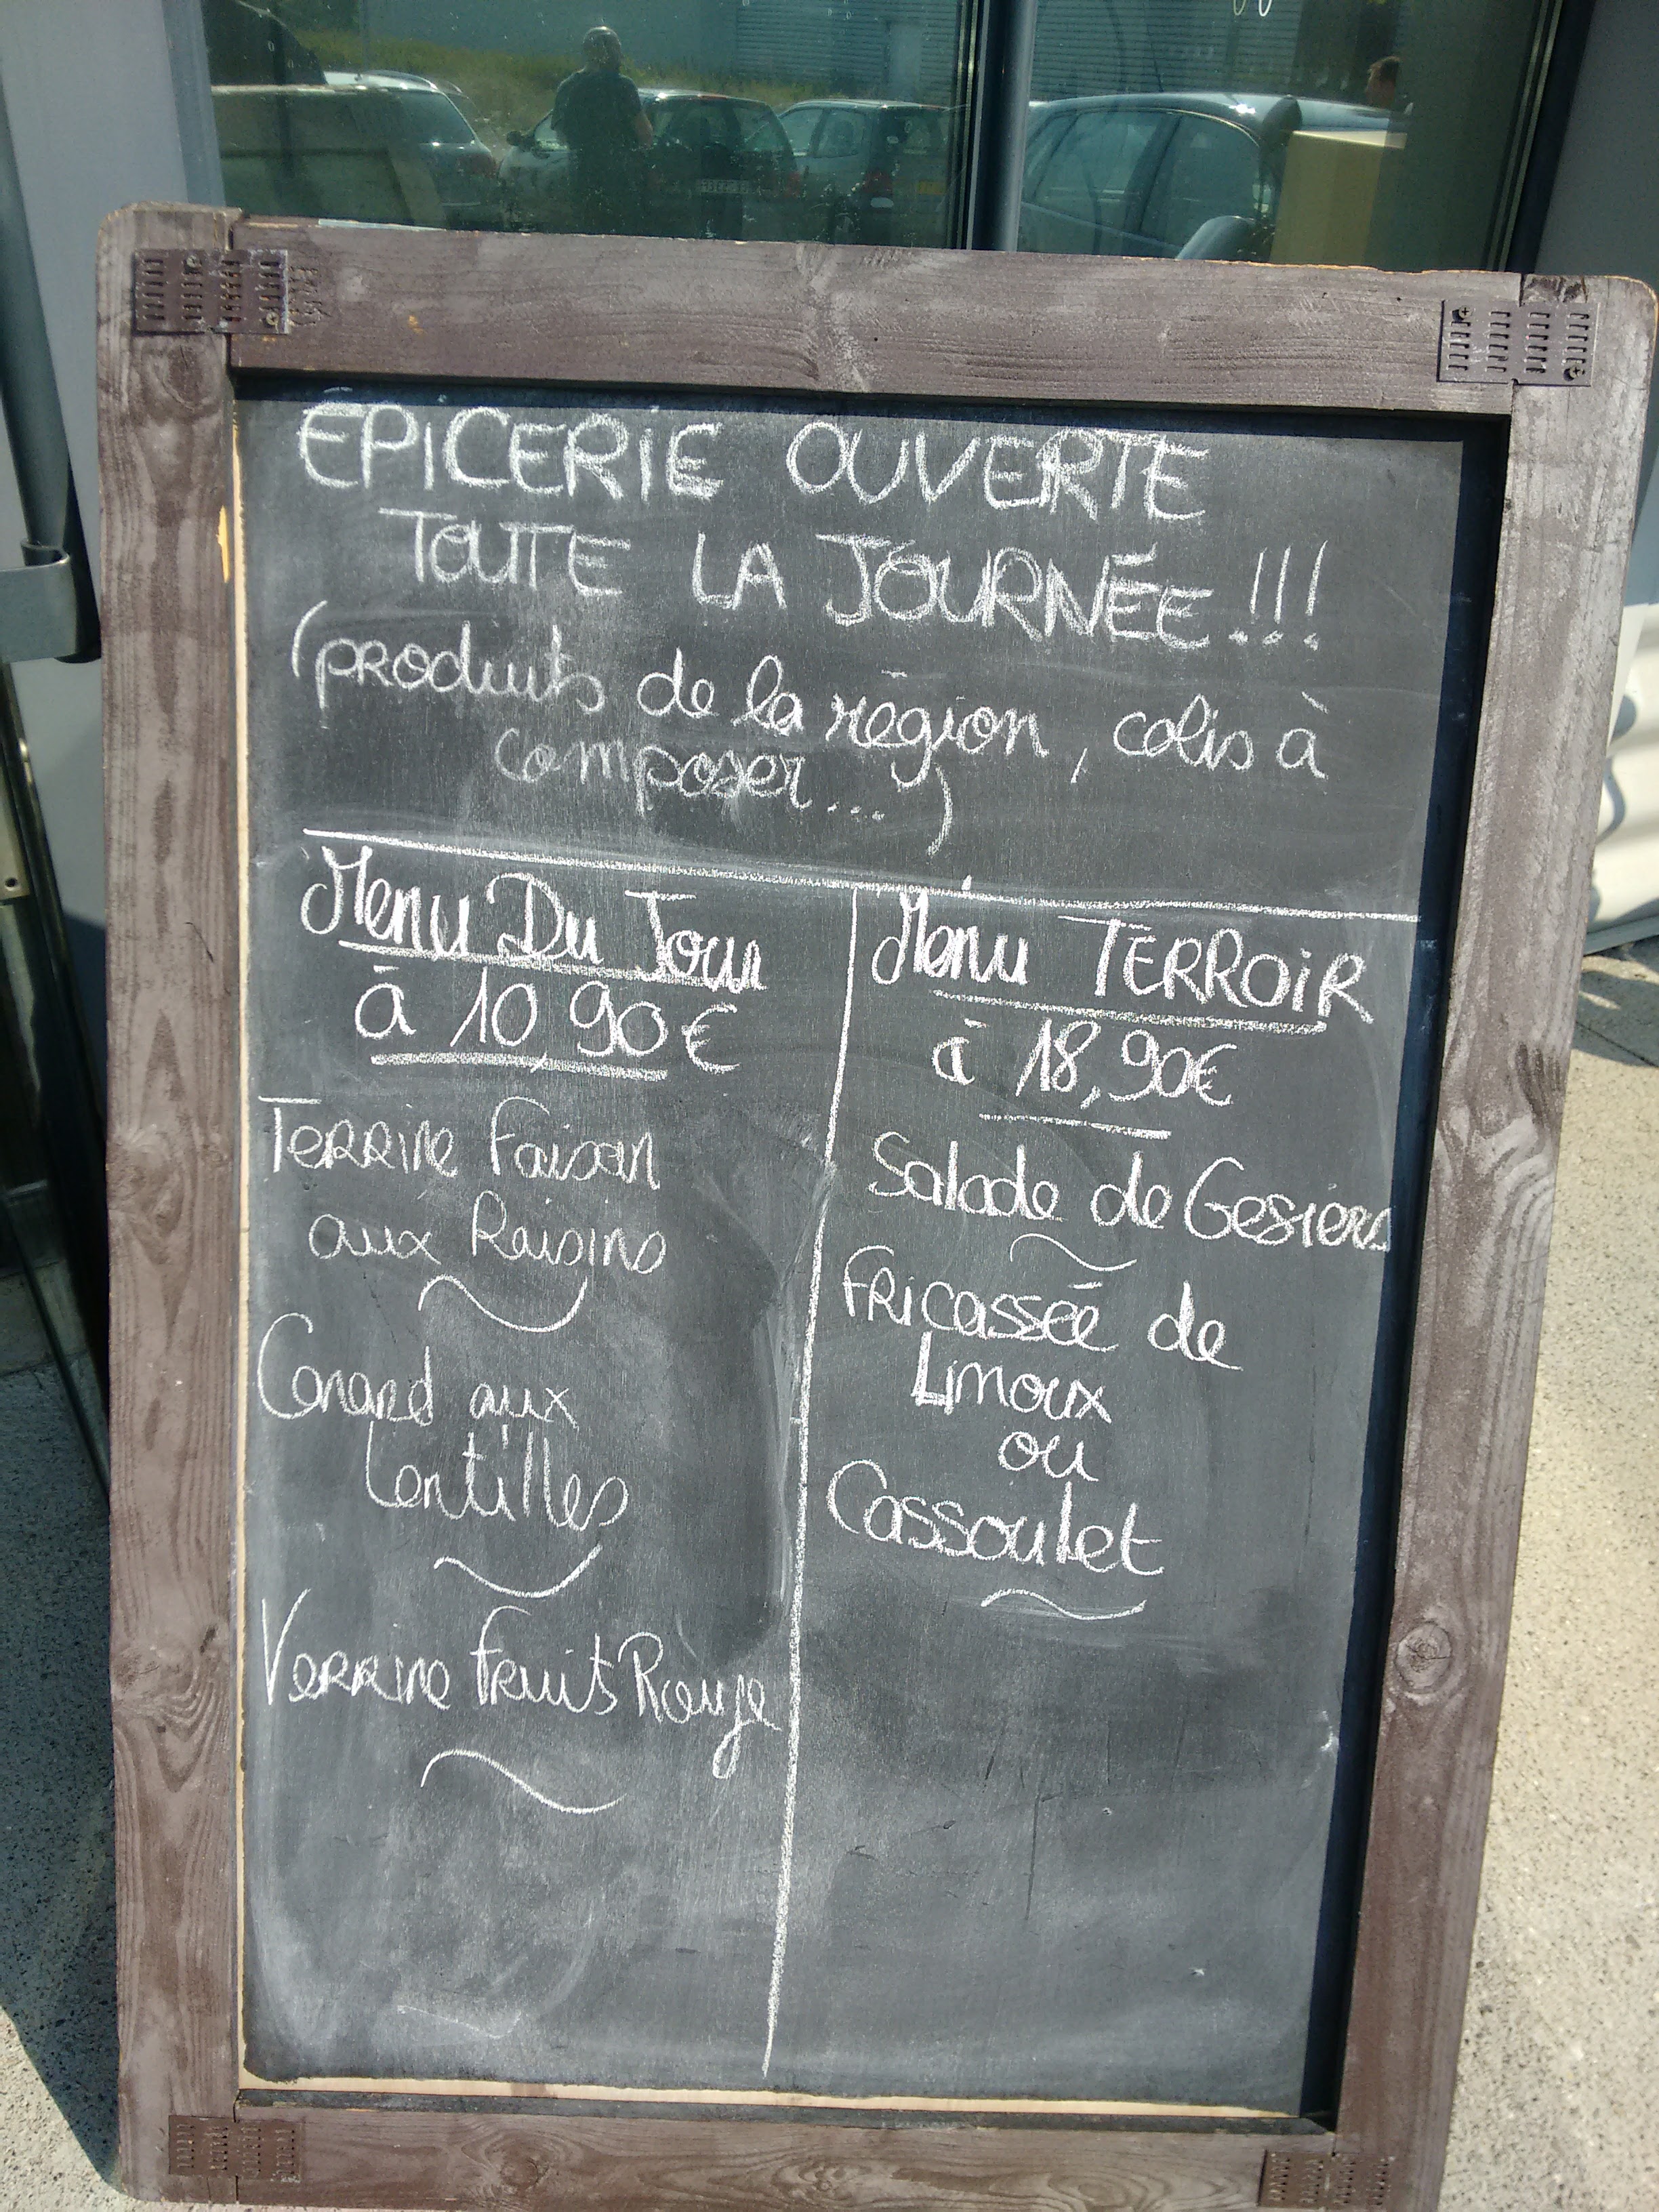 EPICERIE OUVERTE
TOUTE LA JOURNÉE !!!
(produits de la région, colis à
composer...)
Menu Du Jour
à 10,90€
Terrine Faisan
aux Raisins
Canard aux
Lentilles
Verrine Fruits Rouge
Menu TERROIR
à 18,90€
Salade de Gesiers
Fricassée de
Limoux
ou
Cassoulet